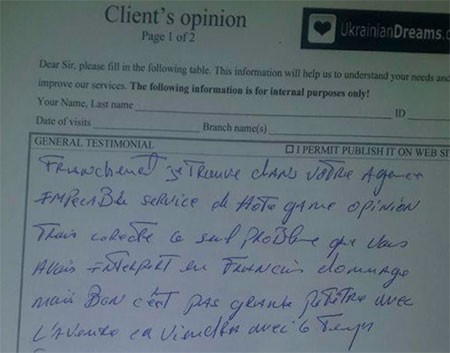 Client's opinion
Page 1 of 2
UkrainianDreams.c
Dear Sir, please fill in the following table. This information will help us to understand your needs and
improve our services. The following information is for internal purposes only!
Your Name, Last name ID
Date of visits Branch name(s)
GENERAL TESTIMONIAL I PERMIT PUBLISH IT ON WEB SI
Franchemet je trouve dans votre Agence
impecable service de haute game opinion
trais corecte le seul problème que vous
Avais interpret en Francais dommage
mais Bon c'est pas grave avec
L'Avenue ca viendra avec le temps